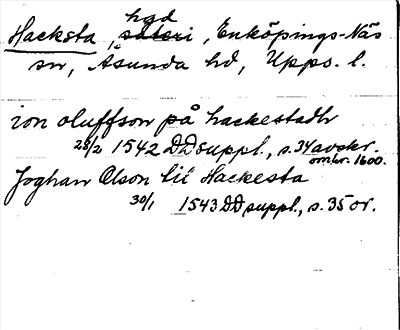 Hacksta, hgd säteri, Enköpings-Näs
sn, Åsunda hd, Upps. l.
ion oluffson på hackestadh
25/2 1542 DD suppl., s. 34 avskr.
omkr. 1600.
Joghan Olson tii Hackesta
30/1 1543 DD suppl., s. 35 or.